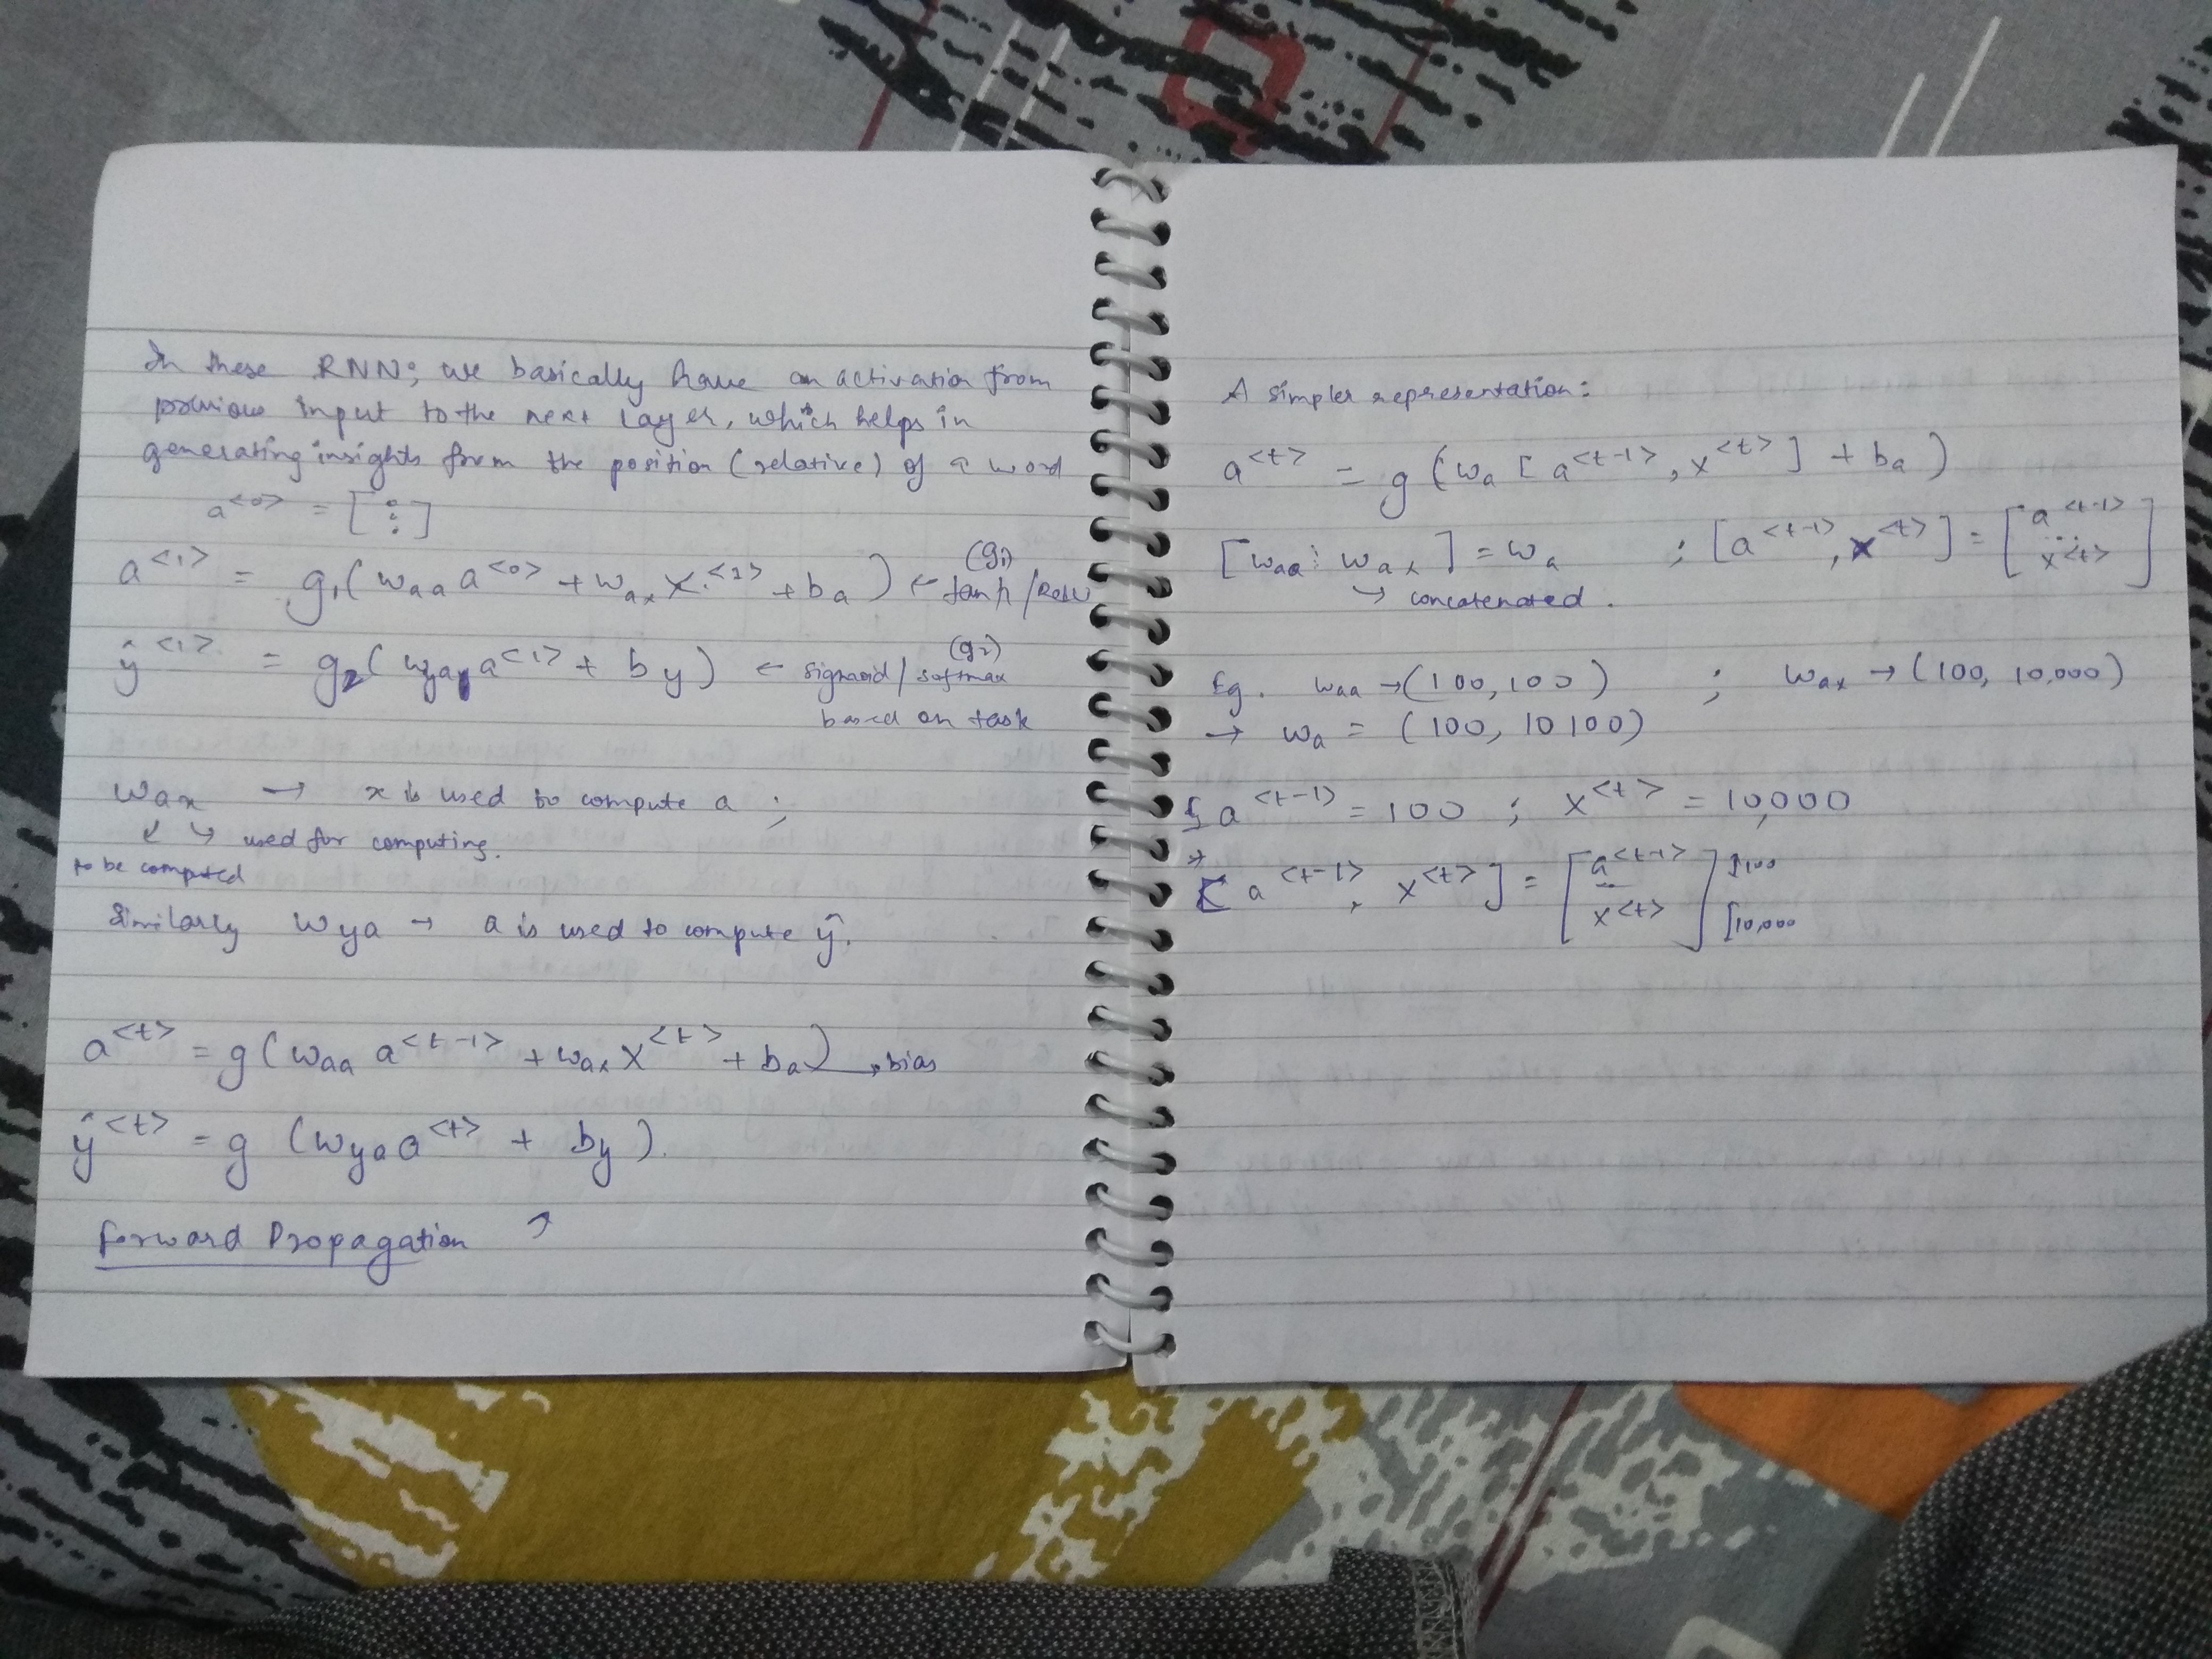 In these RNN; we basically have an activation from
previous input to the next layer, which helps in
generating insights form the position (relative) of a word
a<0> = [ : ]
a<1> = g1(waa a<0> + wax x<1> + ba) ← (g1) tanh/ReLU
ŷ<1> = g2(wya a<1> + by) ← (g2) sigmoid/softmax
based on task
wax → x is used to compute a ;
↙ ↘ used for computing.
to be computed
Similarly wya → a is used to compute ŷ.
a<t> = g(waa a<t-1> + wax x<t> + ba) → bias
ŷ<t> = g (wya a<t> + by).
Forward Propagation ↗
A simpler representation:
a<t> = g (wa [a<t-1>, x<t>] + ba)
[waa ⋮ wax] = wa ; [a<t-1>, x<t>] = [a<t-1> --- x<t>]
↪ concatenated.
Eg. waa → (100, 100) ; wax → (100, 10,000)
→ wa = (100, 10100)
& a<t-1> = 100 ; x<t> = 10,000
→
[a<t-1>, x<t>] = [a<t-1> --- x<t>] ]100 ]10,000